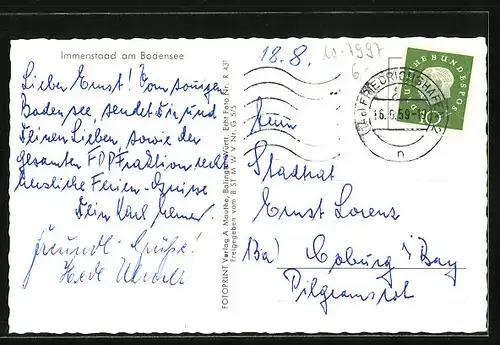 Immenstaad am Bodensee
18.8.
Lieber Ernst! Vom sonnigen
Bodensee, sendet Dir und
Deinen Lieben, sowie der
gesamten FDP Fraktion recht
herzliche Ferien-Grüsse
Dein Karl
Freundl. Grüße!
FOTOPRINT Verlag A. Mauthe, Balingen/Württ. Echt Foto Nr. R 431
Freigegeben vom B ST M W V Nr. G 5/5
DEUTSCHE BUNDESPOST
10
FRIEDRICHSHAFEN
16.6.59-19
n
Herrn
Stadtrat
Ernst Lorenz
Coburg i/Bay
Pilgramsrot